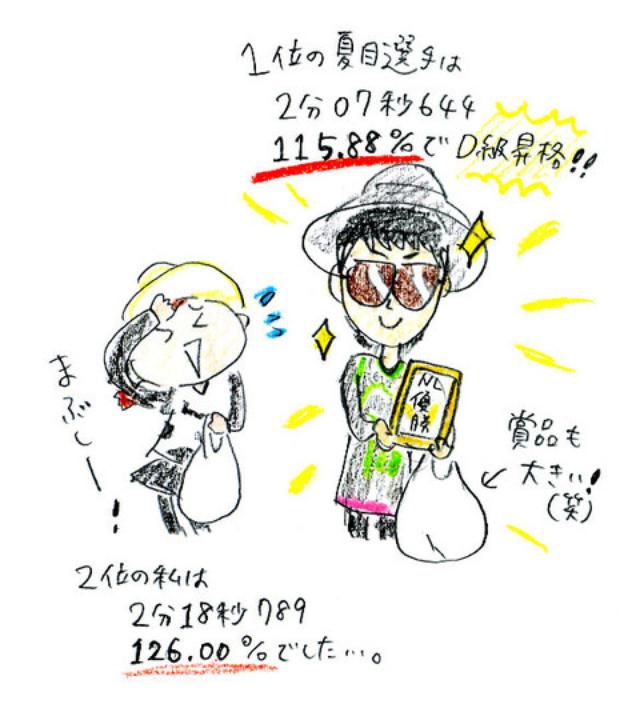 1位の夏目選手は
2分07秒644
115.88%でD級昇格!!
まぶしー!
NL
優勝
賞品も
大きい!
(笑)
2位の私は
2分18秒789
126.00%でした…。